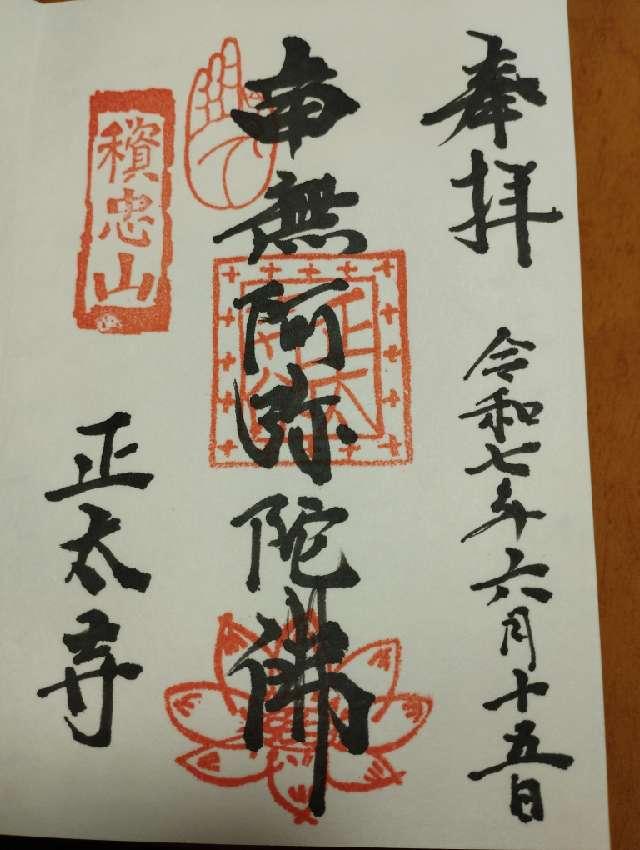 奉拝
令和七年六月十五日
南無阿弥陀佛
忠山
正太寺